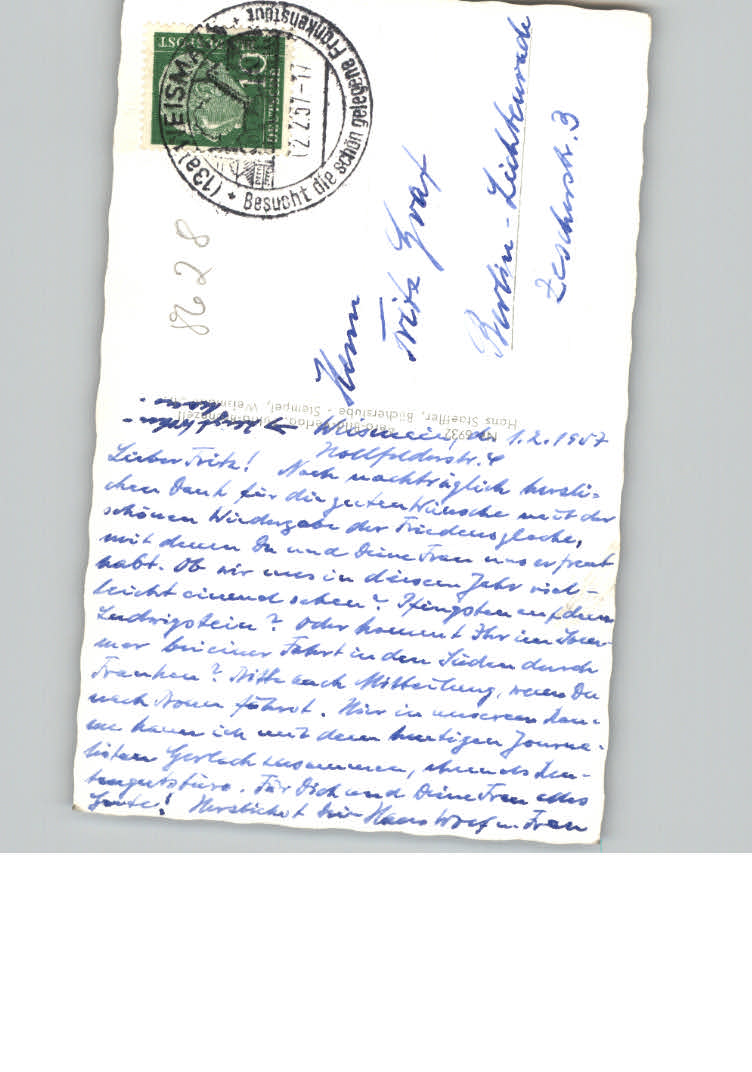 (13a) WEISMAIN
* Besucht die schön gelegene Frankenstadt *
12.2.57-17
10
8628
Herrn
Fritz Graf
Berlin-Lichtenrade
Zescherstr. 3
Hans Staeffler, Bücherstube - Stempel, Weismain
Weismain, den 1.2.1957
Lieber Fritz! Noch nachträglich herzli-
chen Dank für die guten Wünsche mit der
schönen Wiedergabe der Friedensglocke,
mit denen Du und Deine Frau uns erfreut
habt. Ob wir uns in diesem Jahr viel-
leicht einmal sehen? Pfingsten auf dem
Ludwigstein? Oder kommt Ihr im Som-
mer bei einer Fahrt in den Süden durch
Franken? Bitte auch Mitteilung, wenn Du
nach fährst. Hier in unserem
kam ich mit dem heutigen Journa-
listen Gerlach zusammen,
Für Dich und Deine Frau alles
Gute! Herzlichst Dein Hans u. Frau